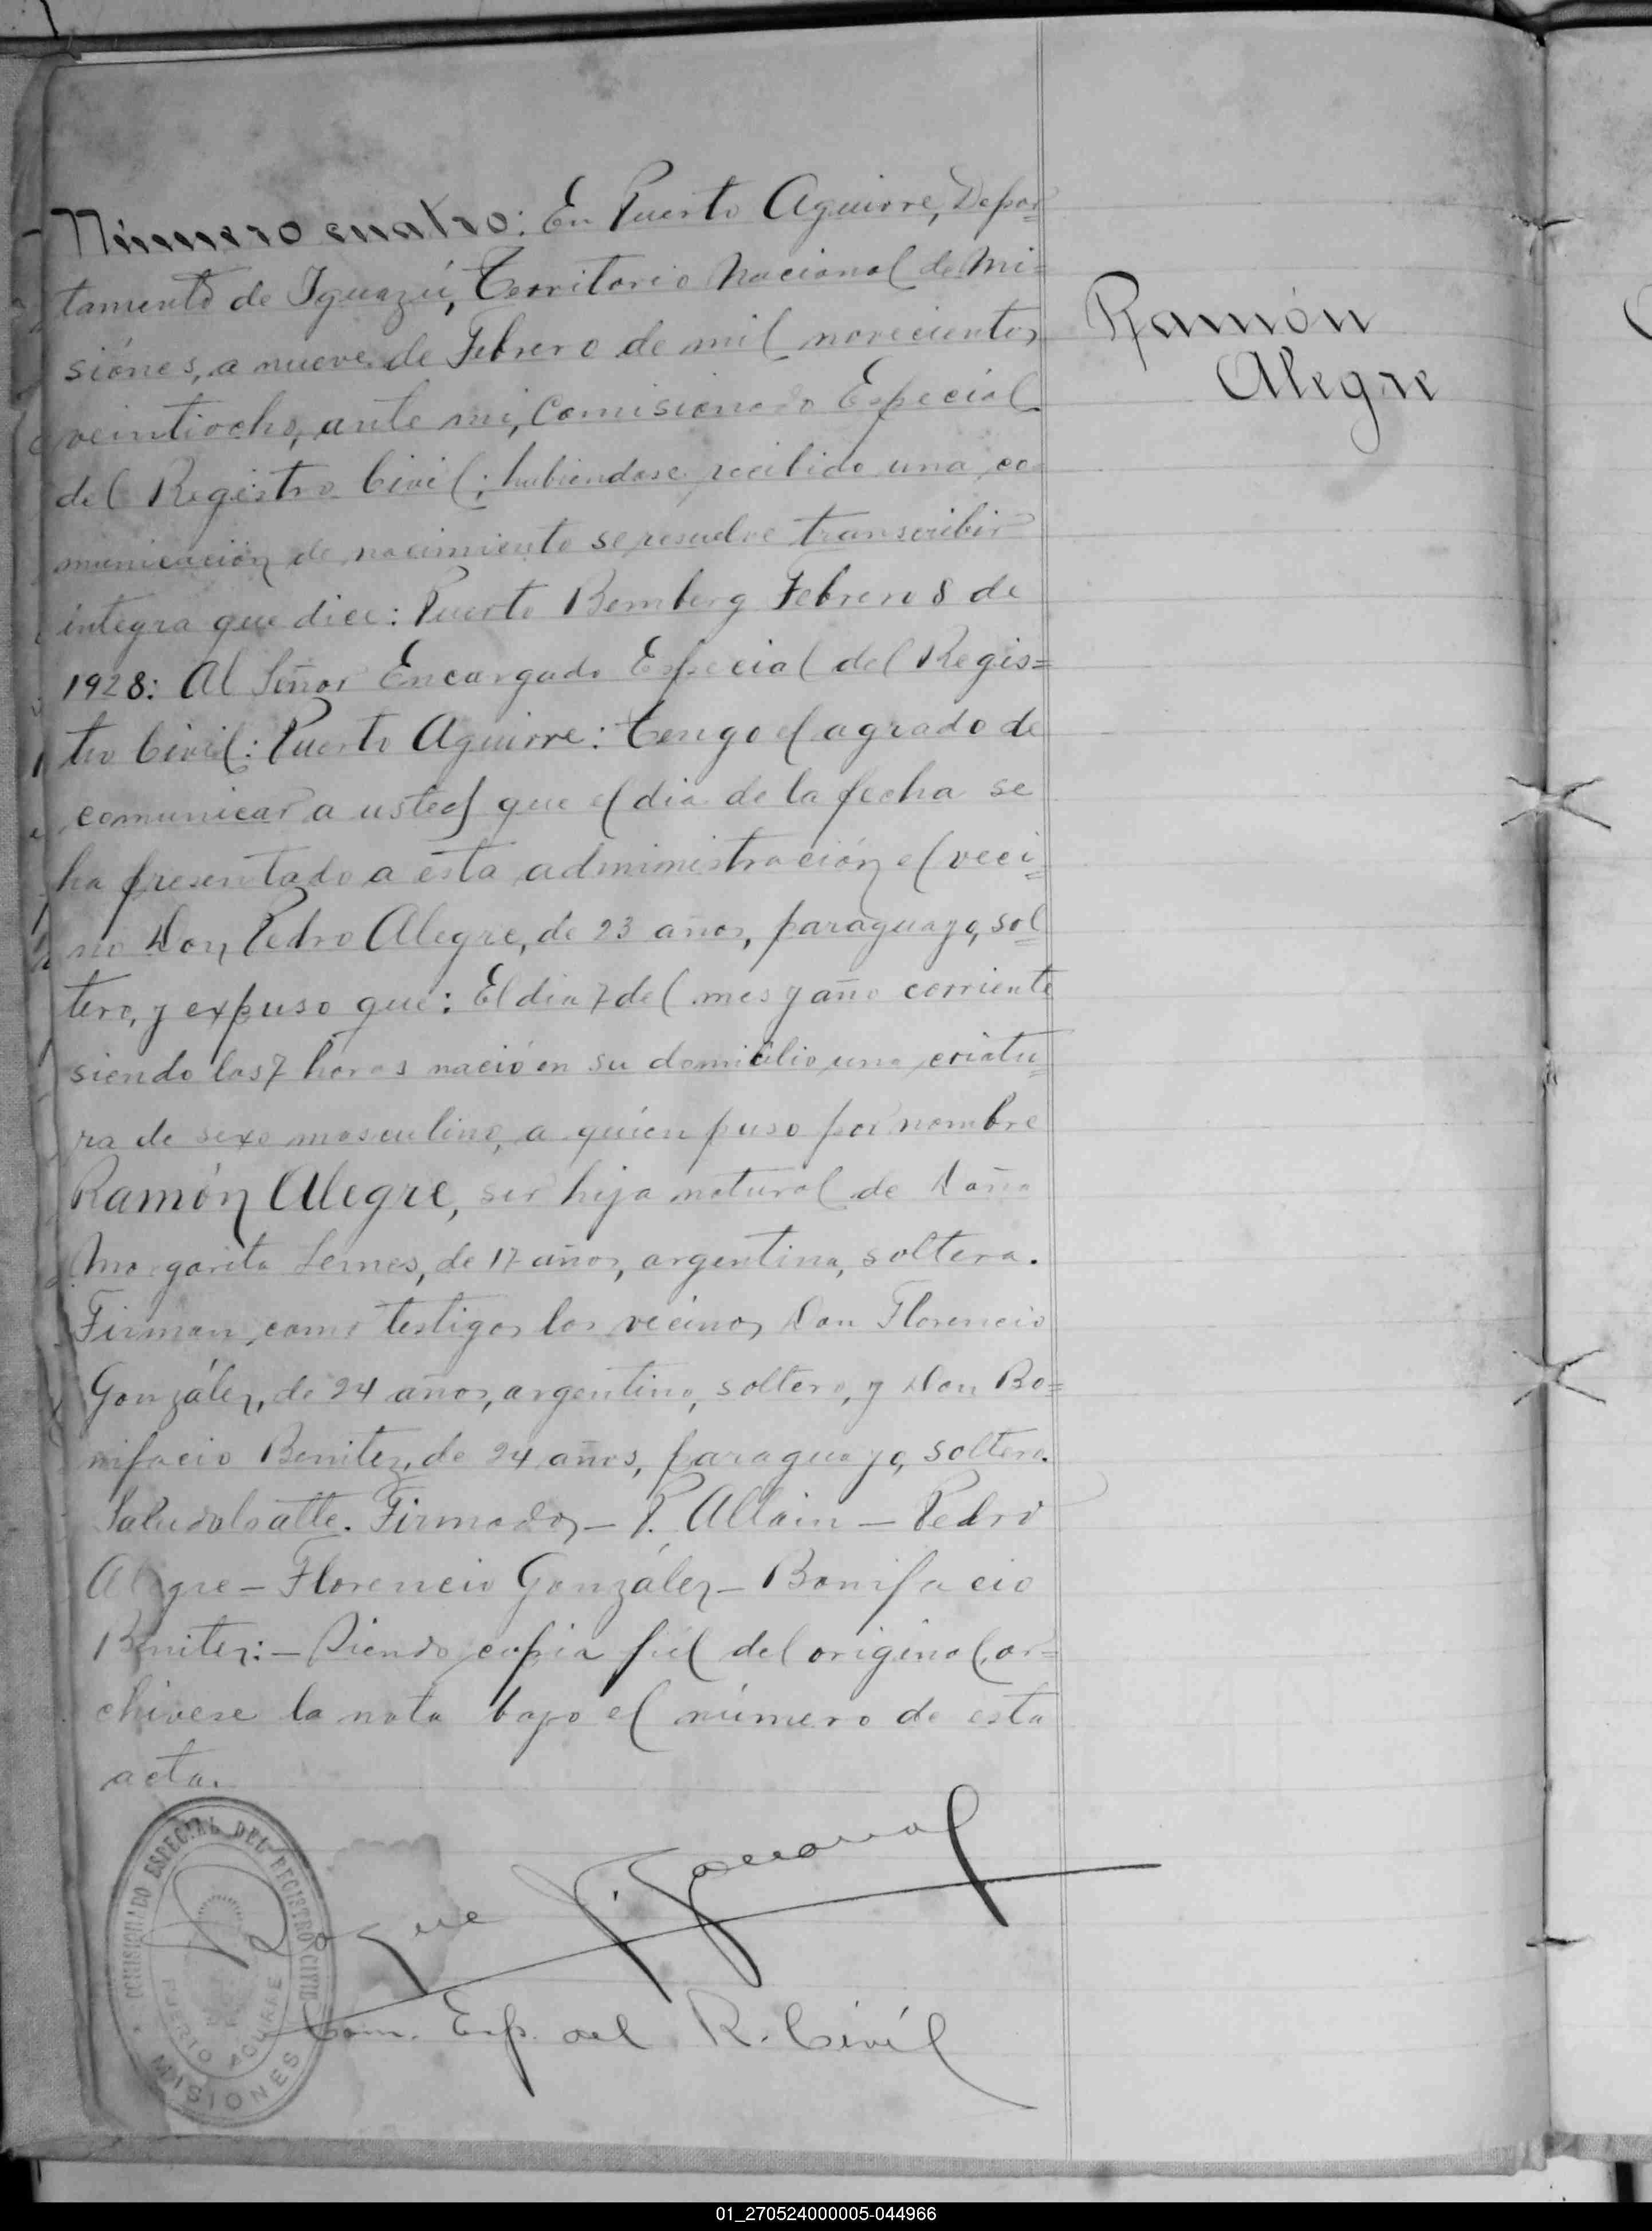 Número cuatro: En Puerto Aguirre, Depar=
tamento de Iguazú, Territorio Nacional de Mi=
siónes, a nueve de Febrero de mil novecientos
veintiocho, ante mi, Comisionado Especial
del Registro Civil; habiendose recibido una co-
municación de nacimiento se resuelve transcribir
integra que dice: Puerto Bemberg Febrero 8 de
1928: Al Señor Encargado Especial del Regis=
tro Civil: Puerto Aguirre: Tengo el agrado de
comunicar a usted que el dia de la fecha se
ha presentado a esta administración el veci=
no Don Pedro Alegre, de 23 años, paraguayo, sol=
tero, y expuso que: El dia 7 del mes y año corriente
siendo las 7 horas nació en su domicilio una criatu=
ra de sexo masculino, a quién puso por nombre
Ramón Alegre, ser hijo natural de Doña
Margarita Lemes, de 17 años, argentina, soltera.
Firman como testigos los vecinos Don Florencio
González, de 24 años, argentino, soltero, y Don Bo=
nifacio Benitez, de 24 años, paraguayo, soltero.
Saludolo atte. Firmados - P. Allain - Pedro
Alegre - Florencio González - Bonifacio
Benitez: - Siendo copia fiel del original, ar=
chivese la nota bajo el número de esta
acta.
Ramón
Alegre
COMISIONADO ESPECIAL DEL REGISTRO CIVIL
PUERTO AGUIRRE
MISIONES
Roque
Com. Esp. del R. Civil
01_270524000005-044966